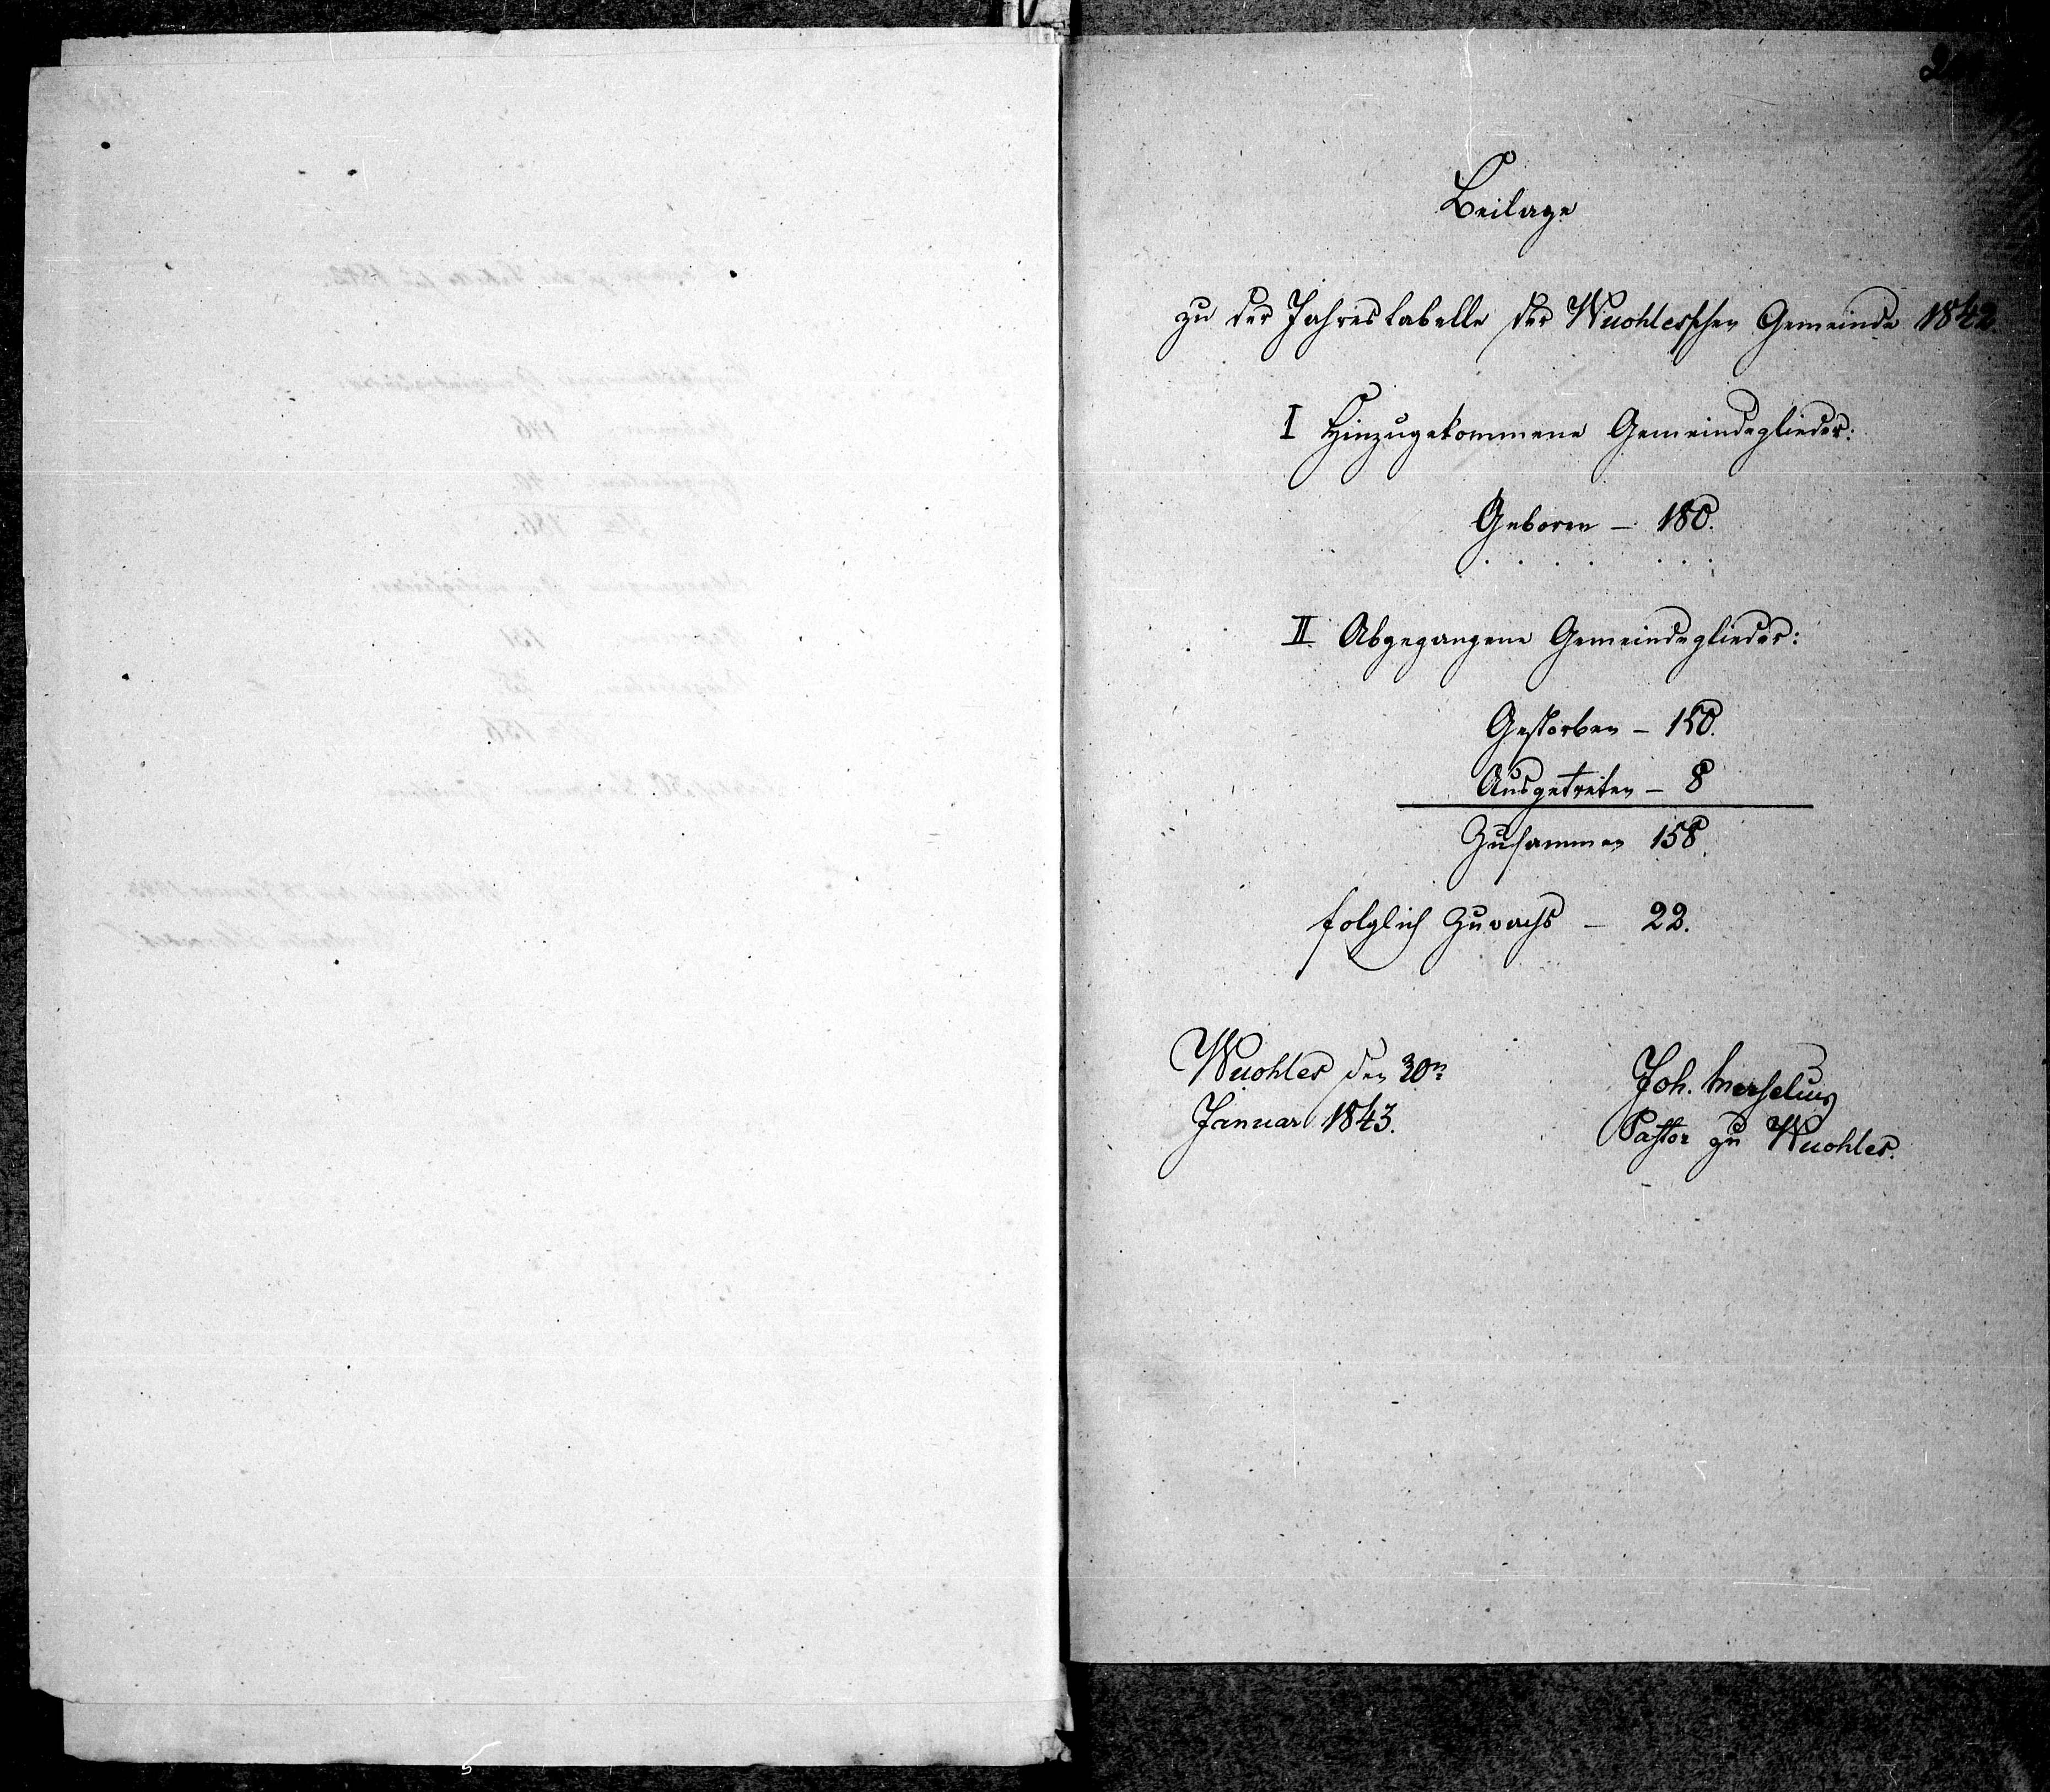 Beilage
zu der Jahrestabelle der Wuohlesschen Gemeinde 1842.
I Hinzugekommene Gemeindeglieder:
Geboren – 180.
II. Abgegangene Gemeindeglieder:
Gestorben – 150.
Ausgetreten – 8
Zusammen 158.
folglich Zuwachs – 22.
Wuohles den 30n
Januar 1843.
Joh.
Pastor zu Wuohles.